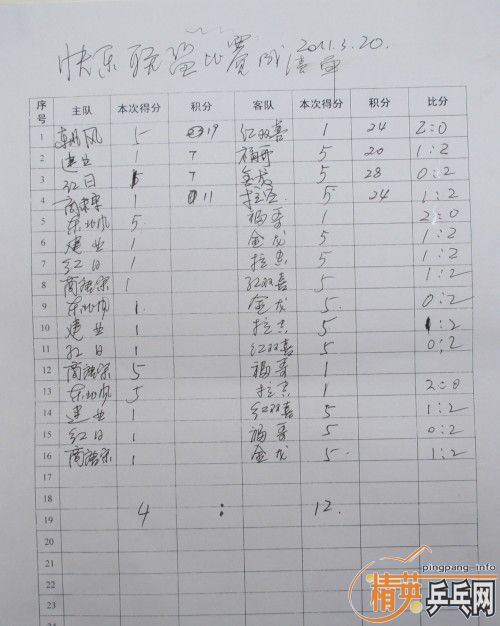 快乐联盟比赛成绩单 2011.3.20.
序号 主队 本次得分 积分 客队 本次得分 积分 比分
1 东北风 5 19 红双喜 1 24 2:0
2 建业 1 7 福哥 5 20 1:2
3 红日 5 7 金龙 5 28 0:2
4 1 11 拉吉 5 24 1:2
5 东北风 5. 福哥 1 2:0
6 建业 1 金龙 5 1:2
7 红日 1 拉吉 5 1:2
8 1 红双喜 5 1:2
9 东北风 1. 金龙 5. 0:2
10 建业 1 拉吉 5 1:2
11 红日 1 红双喜 5 0:2
12 5 福哥 1
13 东北风 5 拉吉 1 2:0
14 建业 1 红双喜 5 1:2
15 红日 1 福哥 5 0:2
16 1 金龙 5. 1:2
17
18
19 4 : 12.
20
21
22
23
24
pingpang_info
精英乒乓网